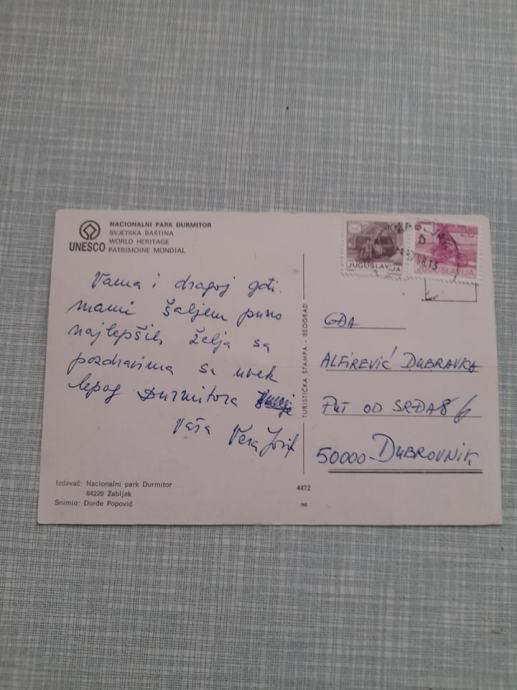 NACIONALNI PARK DURMITOR
SVJETSKA BAŠTINA
WORLD HERITAGE
PATRIMOINE MONDIAL
UNESCO
JUGOSLAVIJA
JUGOSLAVIJA
Vama i dragoj gđi.
mami šaljem puno
najlepših želja sa
pozdravima sa uvek
lepog Durmitora
Vaša Vera
TURISTIČKA ŠTAMPA - BEOGRAD
GĐA
ALFIREVIĆ DUBRAVKA
PUT OD SRĐA
50000 - DUBROVNIK
Izdavač: Nacionalni park Durmitor
84220 Žabljak
Snimio: Đorđe Popović
4472